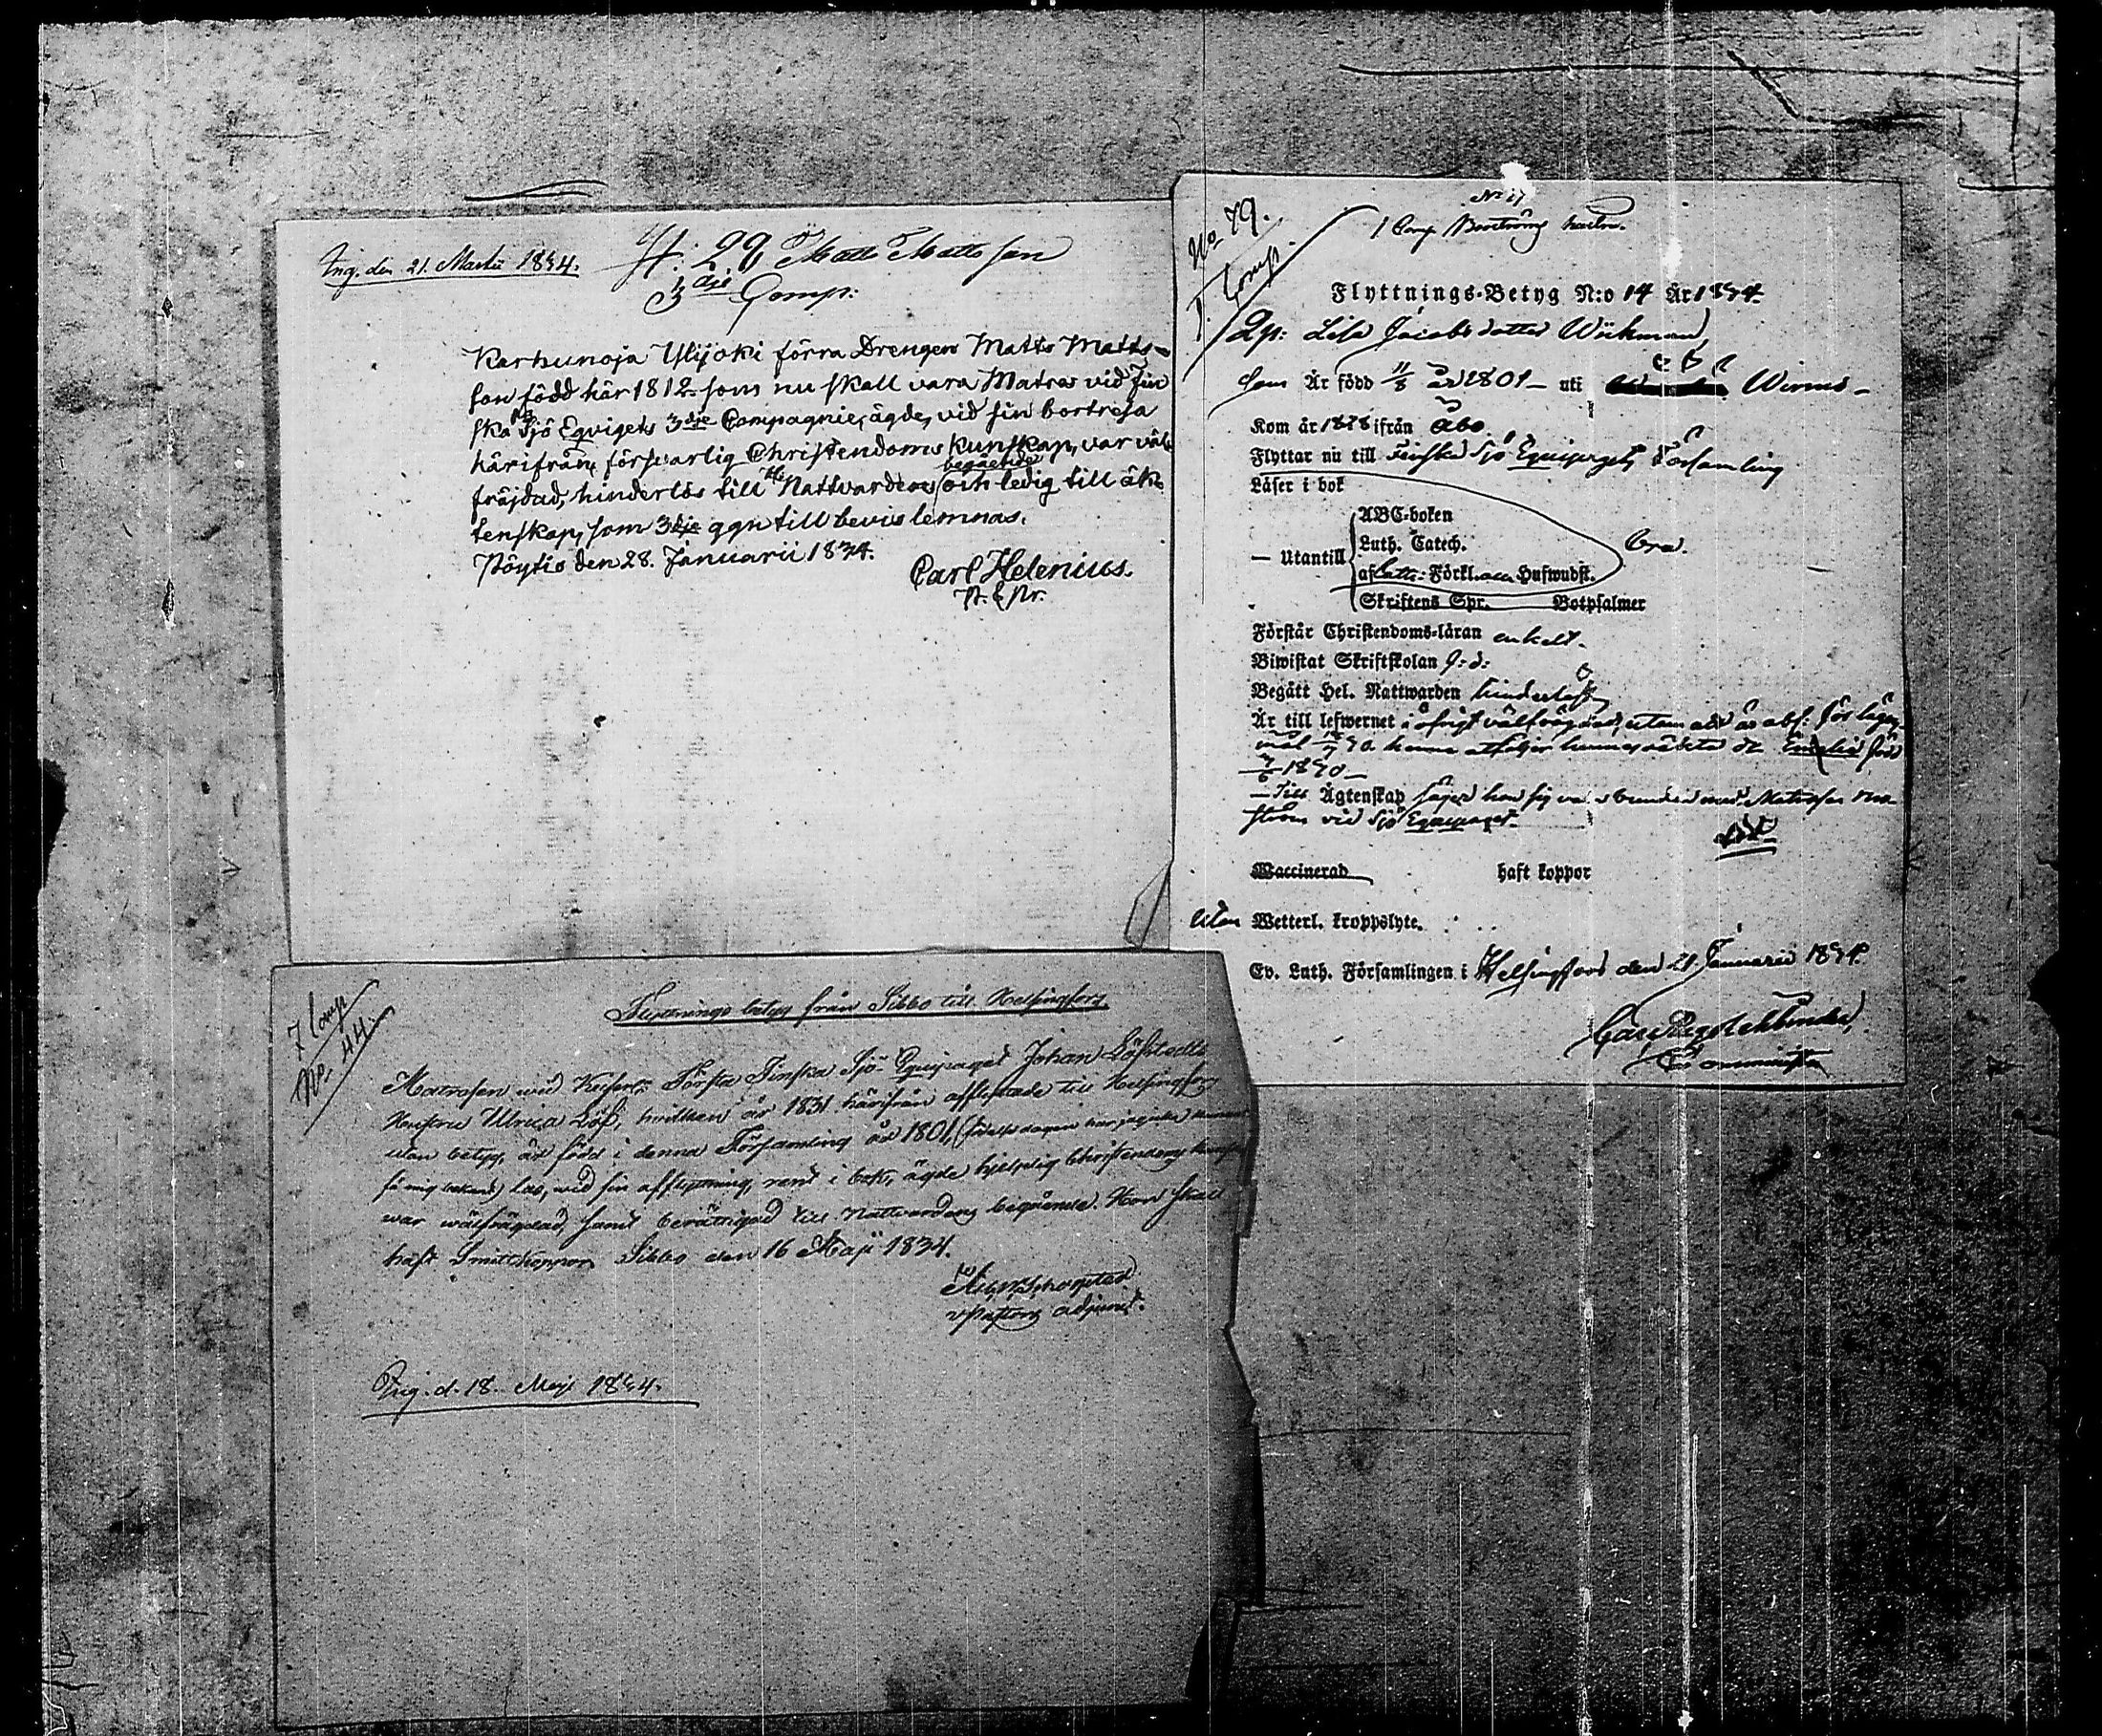 Ing. den 21. Martii 1834.
29 Matts Mattsson
3dje Comp:
Karhunoja Ylijoki förra Drengen Matts Matts-
son född här 1812 som nu skall vara Matros vid Fin
ska Sjö Equipets 3dje Compagnie, ägde, vid sin bortresa
härifrån, försvarlig Christendoms kunskap, var väl
fräjdad, hinderlös till Hs Nattvardens begående och ledig till äk-
tenskap, som 3dje ggn till bevis lemnas.
Pöytis den 28. Januarii 1834.
Carl Helenius.
No 79.
1 Comp.
Flyttnings-Betyg N:o 14 År 1834.
Qp: Lisa Jacobsdotter Wickman,
som Är född 11/8 år 1801 – uti Wirmo –
Kom år 1828 ifrån Åbo.
Flyttar nu till Finska Sjö Equipagets Församling
Läser i bok
ABC-boken
Luth. Catech. bra.
— Utantill
Förkl. Hufwudst.
Skriftens Spr. Botpsalmer
Förstår Christendoms-läran enkelt.
Biwistat Skriftskolan
Begått Hel. Nattwarden hinderlöst
Är till lefwernet i öfrigt välfrägdad, utom att är abs: för lägers
mål henne åtföljer hennes oäkta Emelie född
1830 –
– Till Ägtenskap säges hon sig vara bunden med Matrosen
ström vid Sjö Equipaget.
Waccinerad haft koppor
Utan Wetterl. kroppslyte.
Ev. Luth. Församlingen i Helsingfors den 21. Januarii 1834.
7 Comp
No. 44.
Flyttnings betyg från Sibbo till Helsingfors.
Matrosen wid Keiserl: Första Finska Sjö Equipaget Johan Löfstedts
Hustru Ulrica Löf, hvilken år 1831 härifrån afflyttade till Helsingfors
utan betyg, är född i denna Församling år 1801, (födelse dagen har jag icke kunnat
få mig bekant) las, wid sin afflyttning, rent i bok, ägde hjelplig Christendoms kunskap
war wälfrägdad, samt berättigad till Nattvardens begående. Hon skall
haft Smittkoppor. Sibbo den 16 Maji 1834.
v Pastors adjunct.
Ing. d. 18. Maji 1834.